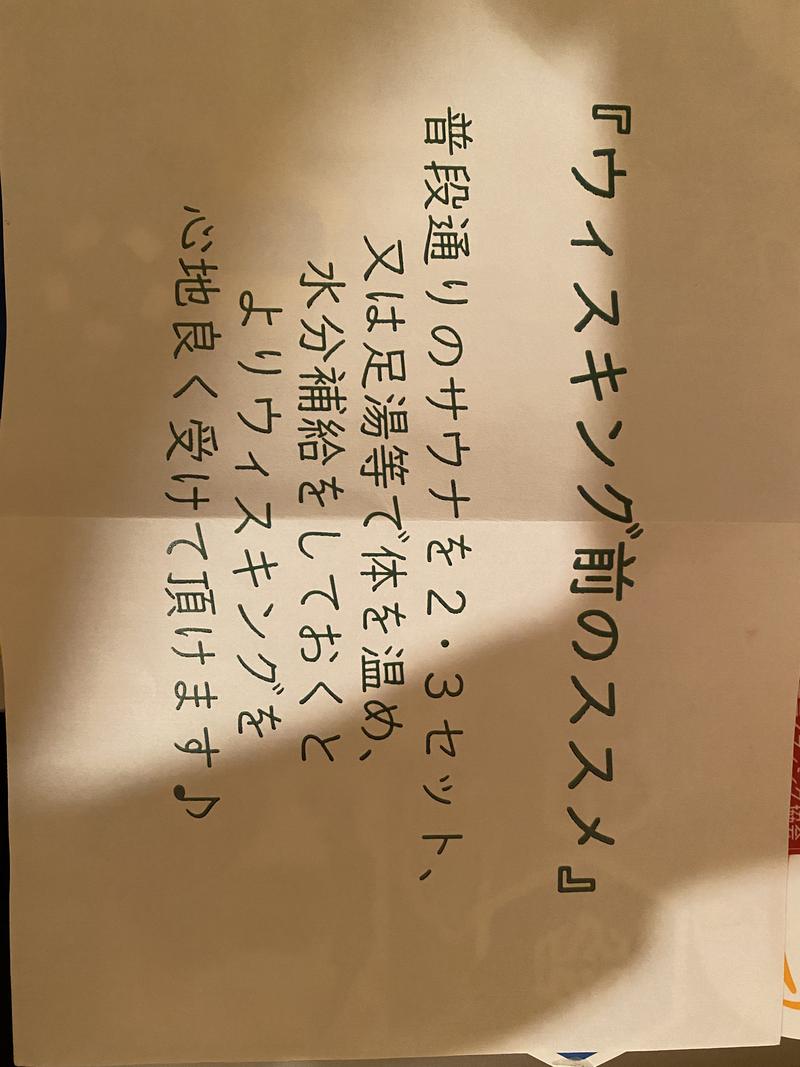 『ウィスキング前のススメ』
普段通りのサウナを２・３セット、
又は足湯等で体を温め、
水分補給をしておくと
よりウィスキングを
心地良く受けて頂けます♪